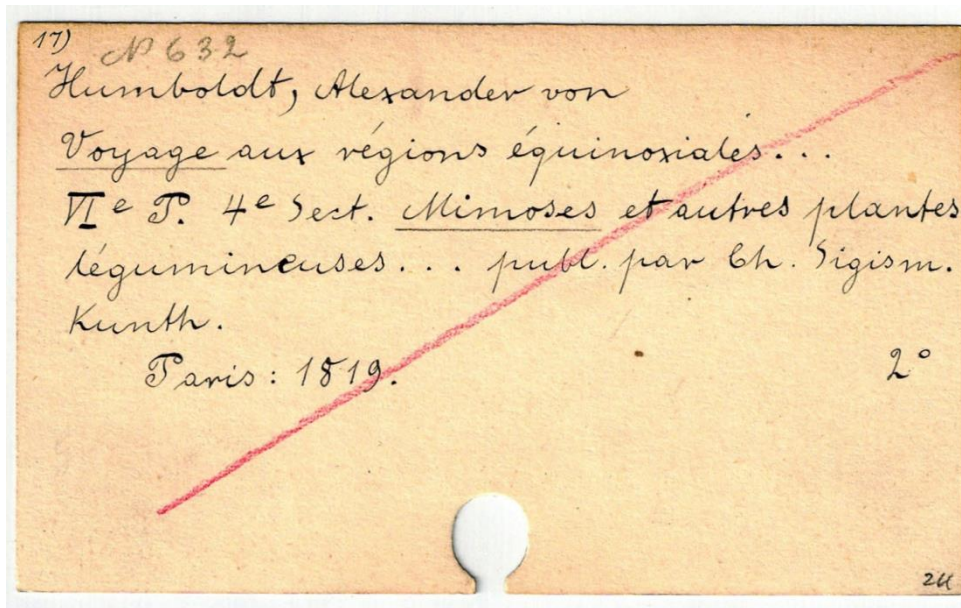 17)
N 632
Humboldt, Alexander von
Voyage aux régions équinoxiales...
VIe P. 4e Sect. Mimoses et autres plantes
légumineuses... publ. par Ch. Sigism.
Kunth.
Paris: 1819. 2°